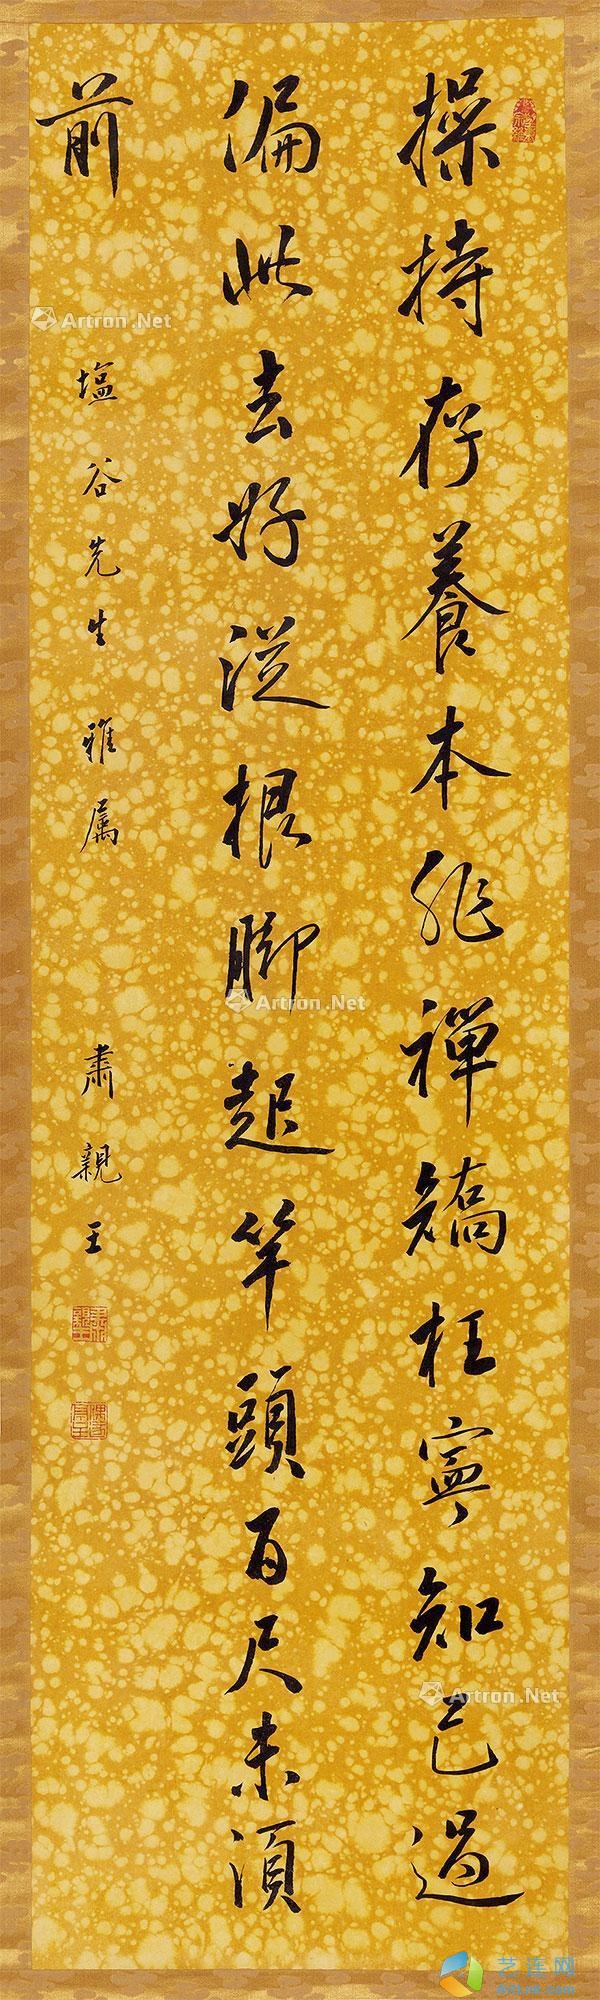 操持存養本非禪矯枉寧知已過
偏此去好從根脚起竿頭百尺未須
前
塩谷先生雅属 肅親王
Artron.Net
Artron.Net
Artron.Net
艺连网
ArtLink.com